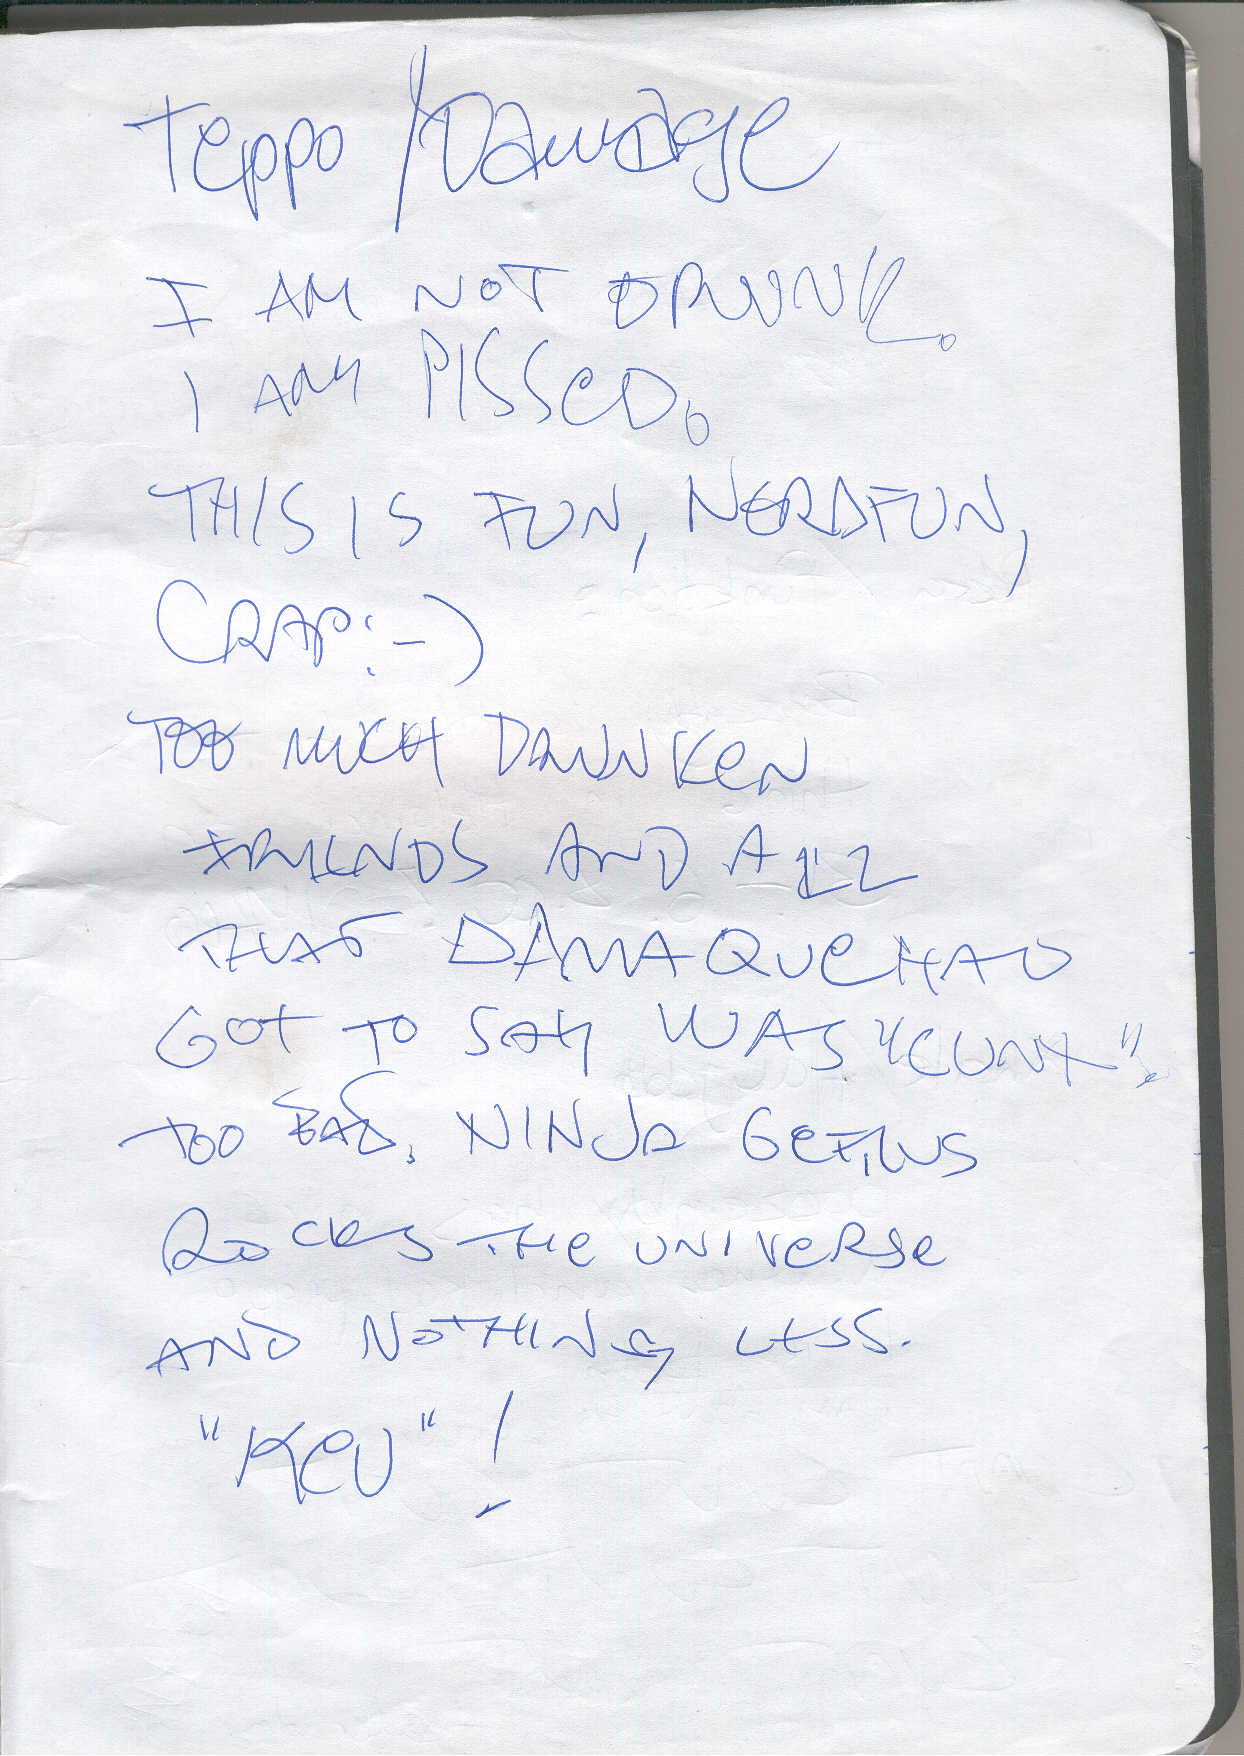 Teppo / Damage
I AM NOT DRUNK.
I AM PISSED.
THIS IS FUN, NERDFUN,
CRAP :-)
TOO MUCH DRUNKEN
FRIENDS AND ALL
THAT DAMAQUEHAO
GOT TO SAY WAS "CUNT".
TOO BAD, NINJA
ROCKS THE UNIVERSE
AND NOTHING LESS.
"KEV" !